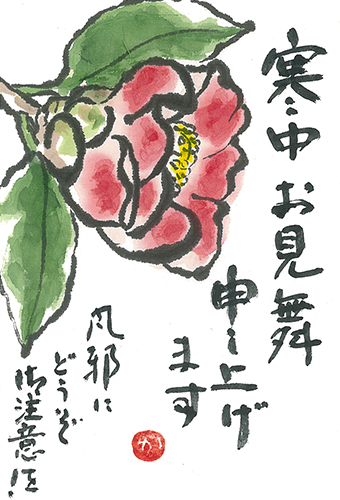 寒中お見舞
申し上げ
ます
風邪に
どうぞ
御注意を